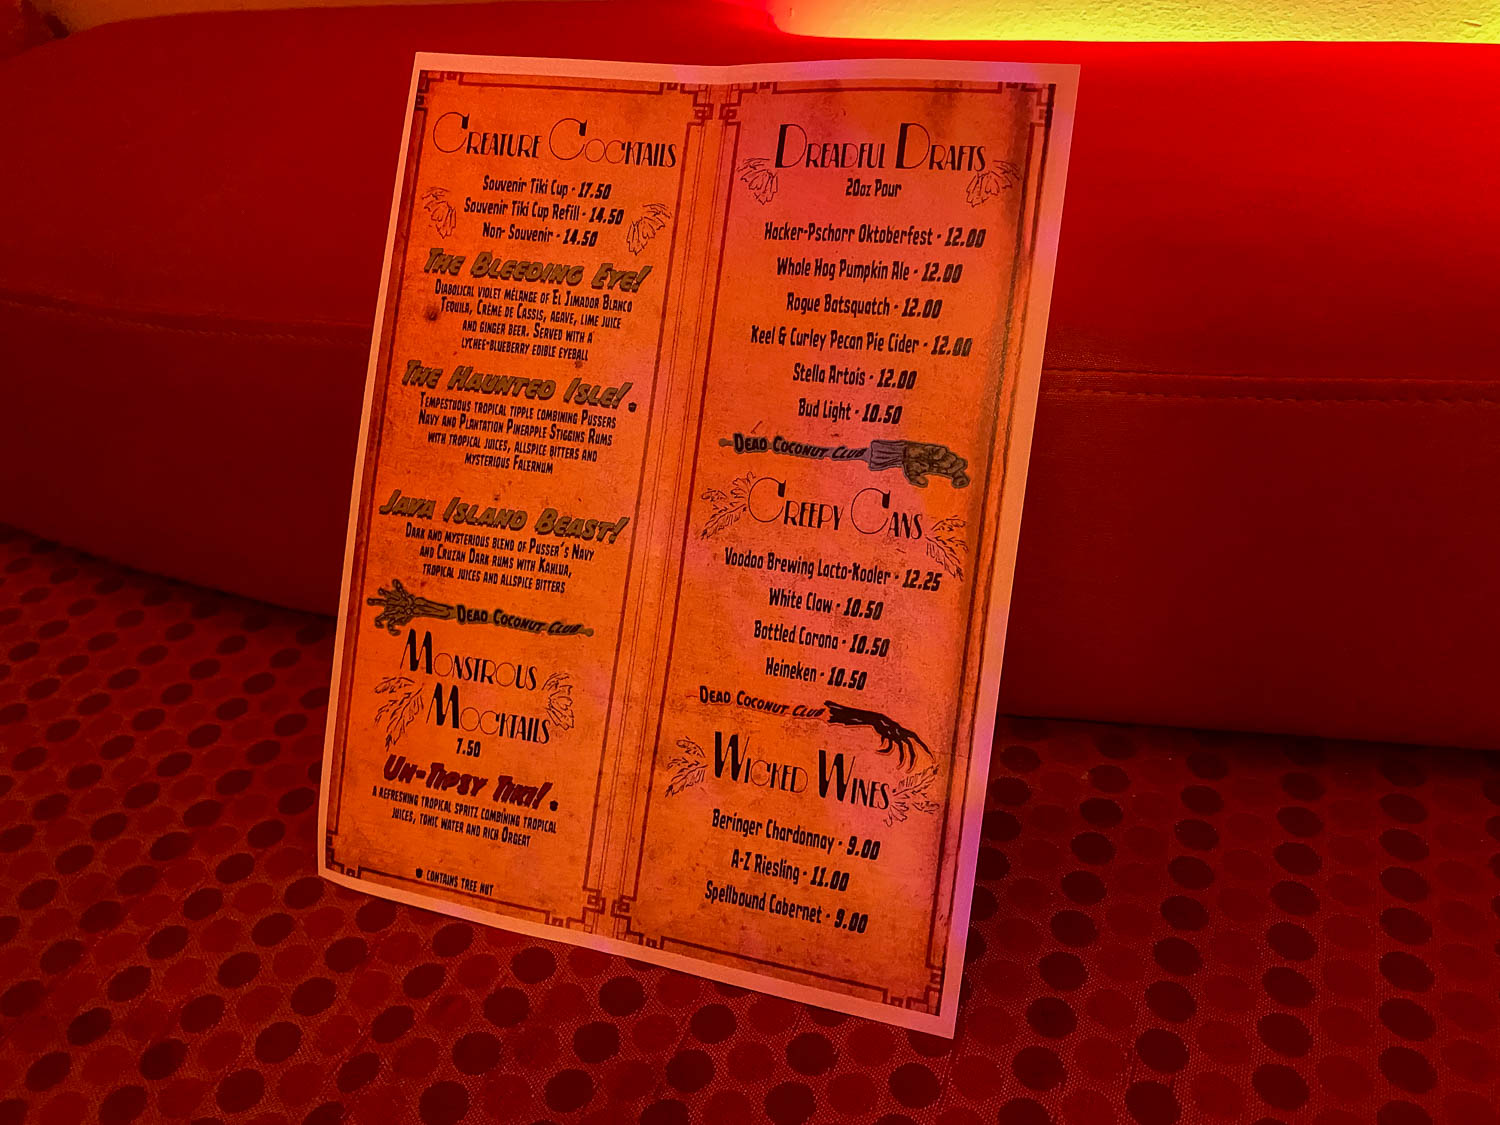 Creature Cocktails
Souvenir Tiki Cup - 17.50
Souvenir Tiki Cup Refill - 14.50
Non- Souvenir - 14.50
The Bleeding Eye!
Diabolical violet mélange of El Jimador Blanco
Tequila, Crème de Cassis, agave, lime juice
and ginger beer. Served with a
lychee-blueberry edible eyeball
The Haunted Isle!
Tempestuous tropical tipple combining Pussers
Navy and Plantation Pineapple Stiggins Rums
with tropical juices, allspice bitters and
mysterious Falernum
Java Island Beast!
Dark and mysterious blend of Pusser's Navy
and Cruzan Dark rums with Kahlua,
tropical juices and allspice bitters
Dead Coconut Club
Monstrous
Mocktails
7.50
Un-Tipsy Tiki!
A refreshing tropical spritz combining tropical
juices, tonic water and rich Orgeat
contains tree nut
Dreadful Drafts
20oz Pour
Hacker-Pschorr Oktoberfest - 12.00
Whole Hog Pumpkin Ale - 12.00
Rogue Batsquatch - 12.00
Keel & Curley Pecan Pie Cider - 12.00
Stella Artois - 12.00
Bud Light - 10.50
Dead Coconut Club
Creepy Cans
Voodoo Brewing Lacto-Kooler - 12.25
White Claw - 10.50
Bottled Corona - 10.50
Heineken - 10.50
Dead Coconut Club
Wicked Wines
Beringer Chardonnay - 9.00
A-Z Riesling - 11.00
Spellbound Cabernet - 9.00